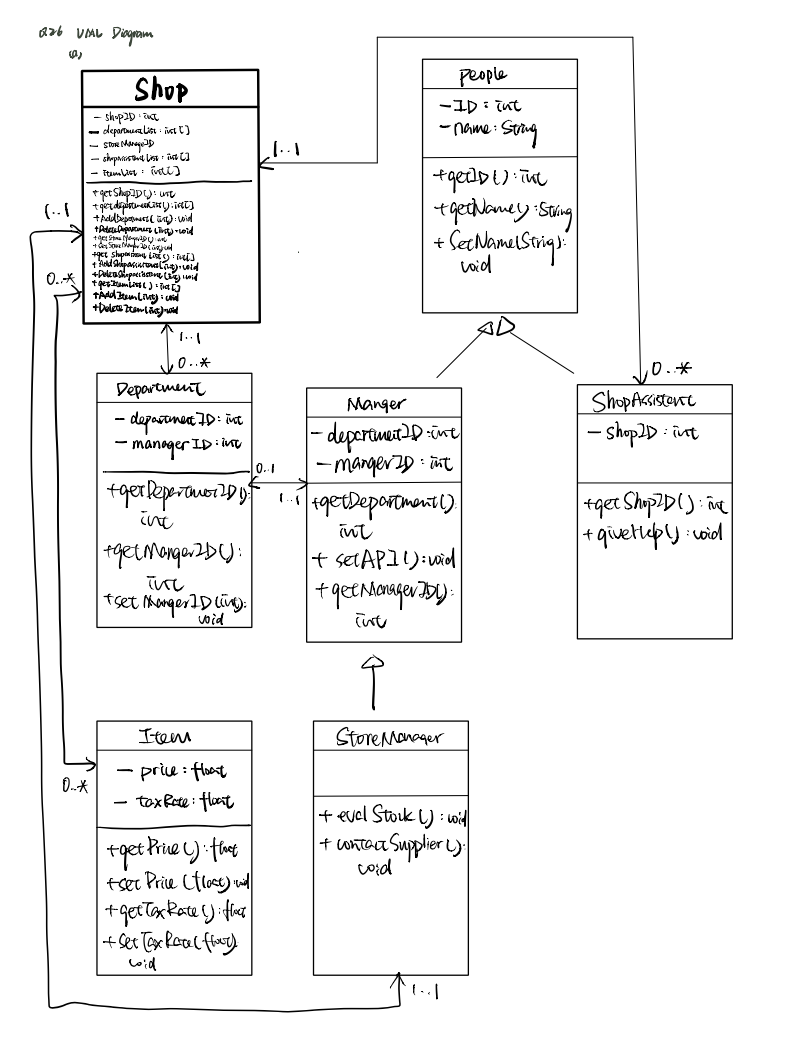 Q26 UML Diagram
(a)
Shop
- shopID : int
- departmentList : int []
- storeManagerID
- shopAssistantList : int []
- itemList : int[]
+ getShopID() : int
+ getdepartmentList() : int[]
+ AddDepartment(int) : void
+ DeleteDepartment(int) : void
+ getStoreManagerID() : int
+ AddShopAssistent(int) : void
+ DeleteShopassistent(int) : void
+ getItemList() : int[]
+ AddItem(int) : void
+ DeleteItem(int) : void
1..1
1..1
0..*
1..1
0..*
people
- ID : int
- name : String
+ getID() : int
+ getName() : String
+ SetName(String) :
void
Department
- departmentID : int
- managerID : int
+ getDepartmentID() :
int
+ getMangerID() :
int
+ set MangerID(int) :
void
0..1
1..1
Manger
- departmentID : int
- mangerID : int
+ getDepartment() :
int
+ setAPI() : void
+ getManagerID() :
int
0..*
ShopAssistent
- shopID : int
+ getShopID() : int
+ giveHelp() : void
Item
- price : float
- taxRate : float
+ getPrice() : float
+ setPrice(float) : void
+ getTaxRate() : float
+ setTaxRate(float)
void
0..*
StoreManager
+ evalStock() : void
+ contactSupplier() :
void
1..1